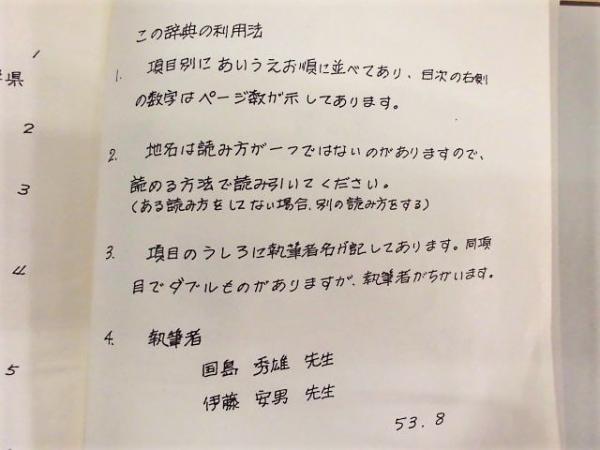 この辞典の利用法
1. 項目別にあいうえお順に並べてあり、目次の右側
の数字はページ数が示してあります。
2. 地名は読み方が一つではないのがありますので、
読める方法で読み引いてください。
(ある読み方をしてない場合、別の読み方をする)
3. 項目のうしろに執筆者名が記してあります。同項
目でダブルものがありますが、執筆者がちがいます。
4. 執筆者
国島 秀雄 先生
伊藤 安男 先生
53.8
県
1
2
3
4
5